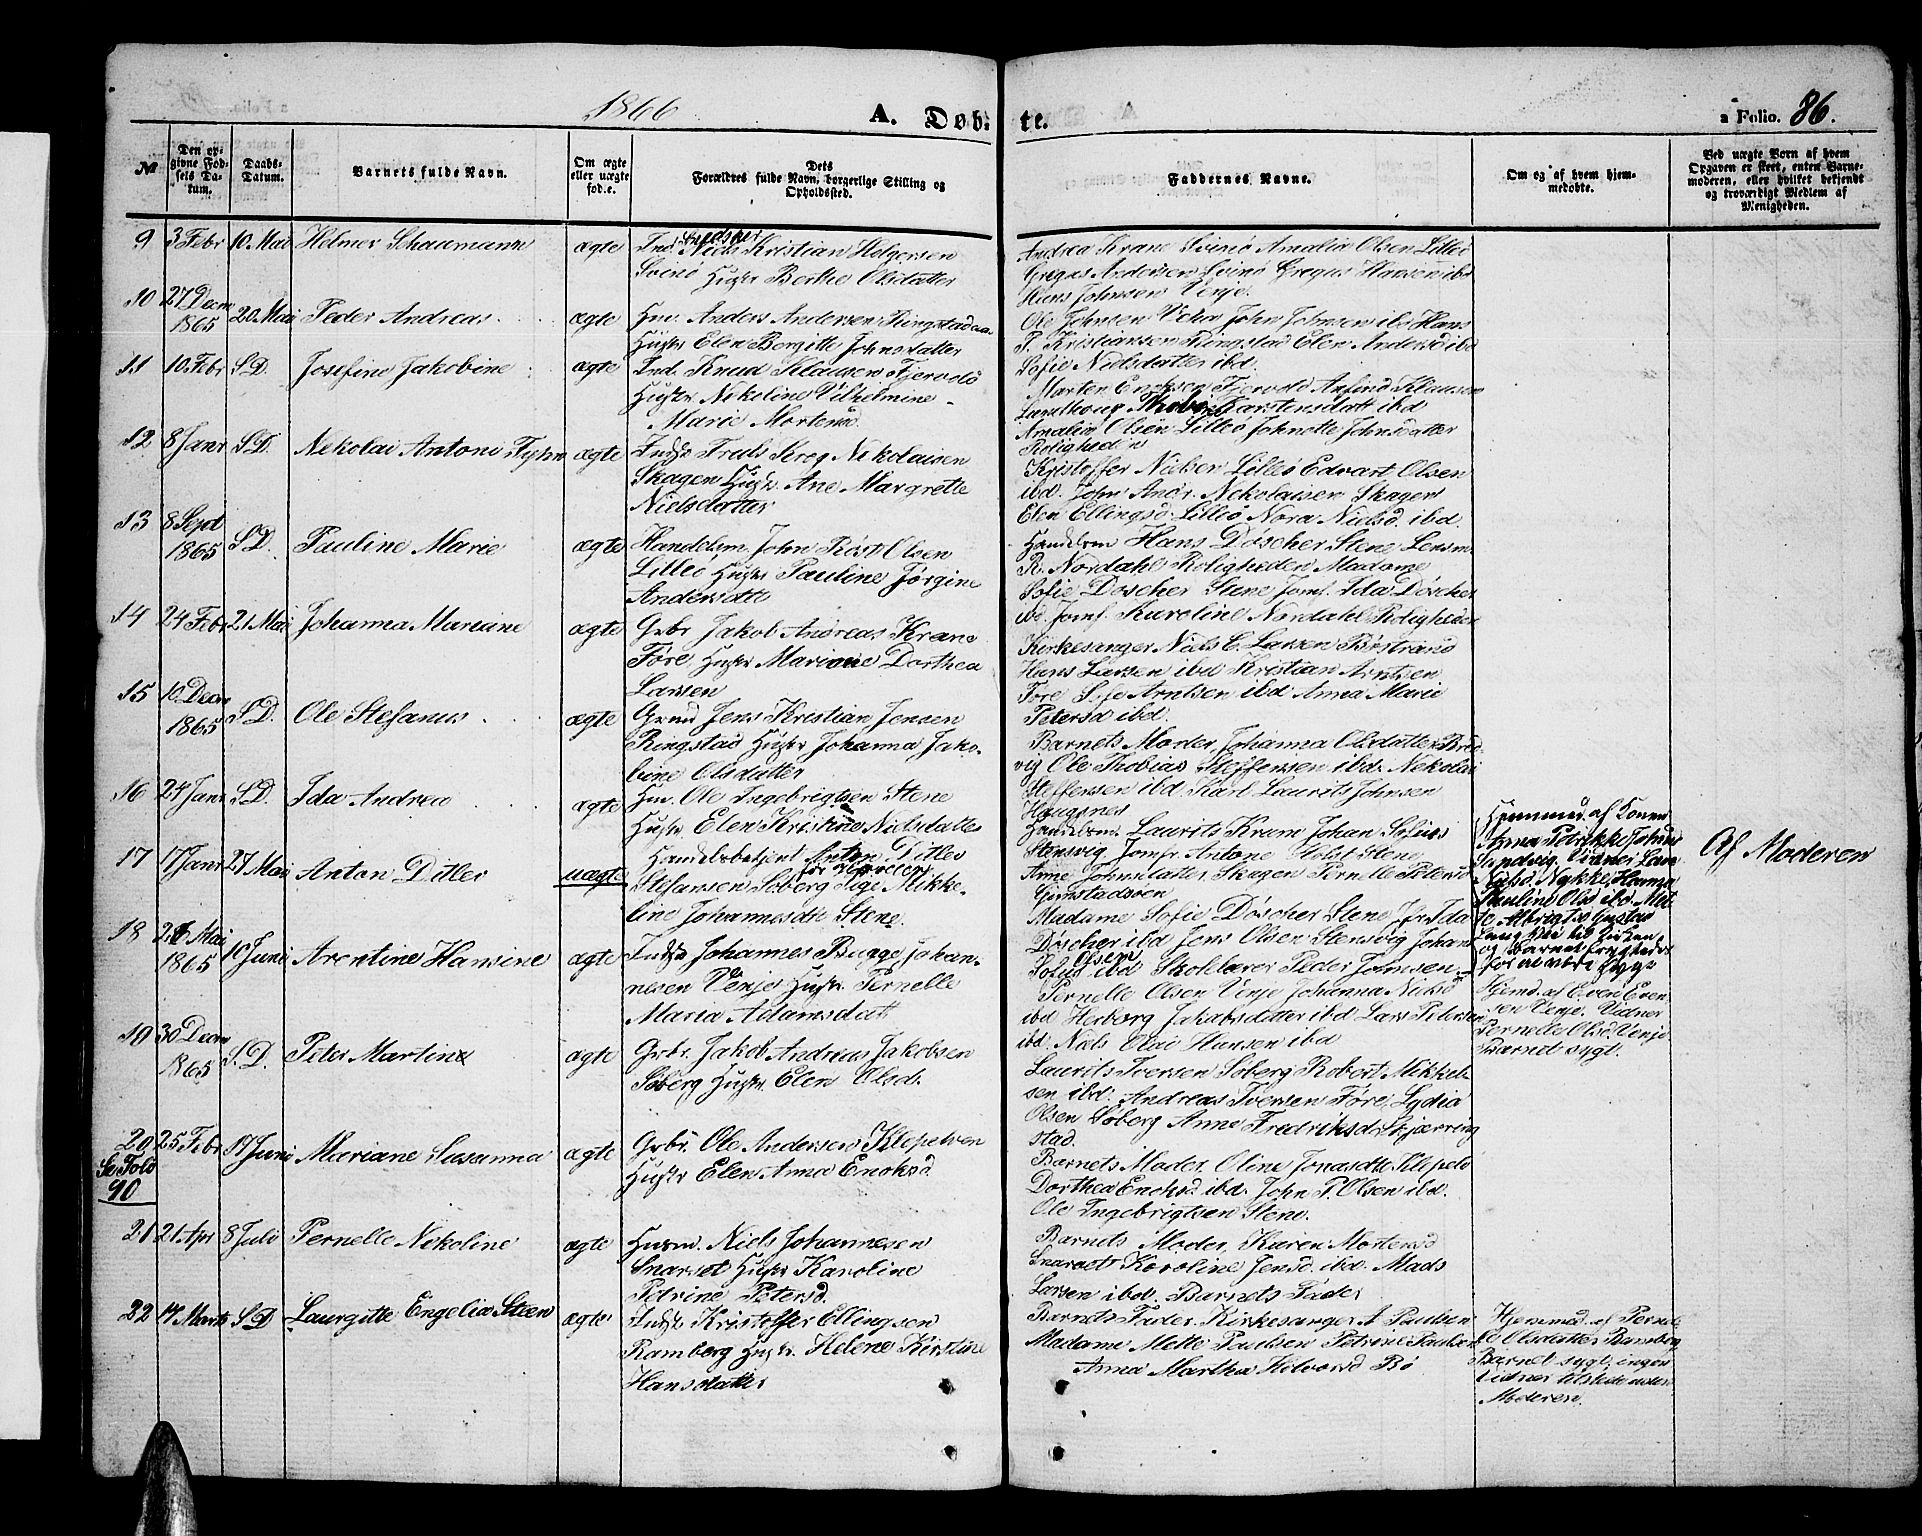 1866 A. Døb- te. a Folio. 86.
No
Den opgivne Fødsels Datum.
Daabs-Datum.
Barnets fulde Navn.
Om ægte eller uægte fød.e.
Dets Forældres fulde Navn, borgerlige Stilling og Opholdssted.
Faddernes Navne.
Om og af hvem hjemmedøbte.
Ved uægte Børn af hvem Opgaven er skeet, enten Barnemoderen, eller hvilket bekjendt og troværdigt Medlem af Menigheden.
9 3 Febr 10. Mai Helmer Schaumann ægte Ind Niels Kristian Holgersen
Svinø Hustr Berthe Olsdatter
Andrea Krane Svinø Amalia Olsen Lilleø
Gregus Andersen Svinø Gregus Hansen ibd
Hans Johnsen Venje.
10 27 Decm 1865 20. Mai Peder Andreas ægte Hm. Anders Andersen Ringstadaa
Hustr Elen Bergitte Johnsdatter
Ole Johnsen Vika John Johnsen ibd Hans
P. Kristiansen Ringstad Elen Andersd ibd
Sofie Nielsdatter ibd.
11 10. Febr S.D. Josefine Jakobine ægte Ind. Knud Klausen Fjervold
Hustr Nekoline Vilhelmine
Marie Mortensd.
Marten Enoksen Fjervold Anfind Klausen
Karstensdatt ibd
Amalia Olsen Lilleø Johnette Johnsdatter
Roligheden
12 8 Janr S.D. Nekolai Antoni Tyhn ægte Truls Krog Nekolaisen
Skagen Hustr. Ane Margrette
Nielsdatter
Kristoffer Nielsen Lilleø Edvart Olsen
ibd. John Andr. Nekolaisen Skagen
Elen Ellingsd. Lilleø Nora Nielsd. ibd.
13 8 Sept 1865 S.D. Pauline Marie ægte Handelsm. John Røst Olsen
Lilleø Hustr Pauline Jørgine
Andersdtt
Handelsm Hans Døscher Stene Lensm
R. Nordahl Roligheden Madame
Sofie Døscher Stene Jomf. Ida Døscher
ibd Jomf. Karoline Nordahl Roligheden
14 24 Febr 21 Mai Johanna Mariane ægte Grbr Jakob Andreas Krane
Føre, Hustr Mariane Dorthea
Larsen
Kirkesanger Niels C. Larsen Børstrand
Hans Larsen ibd Kristian Arntsen
Føre Arntsen ibd Anna Marie
Petersd ibd.
15 10 Decm 1865 S.D. Ole Stefanus ægte Jens Kristian Jensen
Ringstad Hustr Johanna Jako-
bine Olsdatter
Barnets Moder, Johanna Olsdatter Bred-
vig Ole Thobias Steffensen ibd. Nekolai
Steffensen ibd Karl Laurits Johnsen
Haugsnes
16 24 Janr S.D. Ida Andrea ægte Hm. Ole Ingebrigtsen Stene
Hustr. Elen Kristine Nielsdatter
Handelsm. Laurits Kram Johan Sofius
Stensvig Jomfr. Antone Holst Stene
Anne Johnsdatter Skagen Pernelle Petersd
Gimstadsøen
17 17 Janr 27 Mai Anton Ditlev uægte Handelsbetjent Anton Ditlev
Stefansen Søberg Pige Mikke-
line Johannesdtr Stene.
Madame Sofie Døscher Stene Jfr. Ida
Døscher ibd Jens Olsen Stensvig Johan
Sofius Olsen ibd Skolelærer Peder Johnsen
Hjemmed. af Konen
Af Moderen
18 26 Mai 1865 10 Juni Arentine Hansine ægte Johannes Bugge Johan-
nesen Venje Hustr. Pernelle
Maria Adamsdatt
Pernelle Olsen Venje Johanna Nielsd
ibd Herborg Jakobsdatter ibd Lars Petersen
ibd. Niels Olai Hansen ibd
Hjemd. af Even Even-
sen Venje. Vidner
Pernelle Olsd. Venje
Barnet sygt.
19 30 Decm 1865 S.D. Peter Martin ægte Grbr. Jakob Andreas Jakobsen
Søberg Hustr. Elen Olsd.
Laurits Iversen Søberg Robert Mikkel-
sen ibd. Andreas Iversen Føre, Lydia
Olsen Søberg Anne Fredriksdtr Skjærring
stad.
20 25 Febr 17 Juni Mariane Susanna ægte Grbr. Ole Andersen
Hustr Elen Anna Enoksd.
Barnets Moder. Oline Jonasdtt
Dorthea Enoksd. ibd. John P. Olsen ibd.
Ole Ingebrigtsen Stene.
90
21 21 Apr 8 Juli Pernelle Nekoline ægte Husm. Niels Johannesen
Snarset Hustr Karoline
Petrine Petersd.
Barnets Moder, Karen Mortensd
Snarset Karoline Jensd. ibd. Mads
Larsen ibd. Barnets Fader
22 17 Marts S.D. Laurgitte Engelia Steen ægte Kristoffer Ellingsen
Ramberg Hustr. Helene Kirstine
Hansdatter
Barnets Fader. Kirkesanger A Paulsen
Madame Mette Paulsen Petrine Paulsen
Anna Martha Halvorsd Bø
Hjemmed. af Pernel-
le Olsdatter Ramberg
Barnet sygt, ingen
Vidner tilstede uden
Moderen.